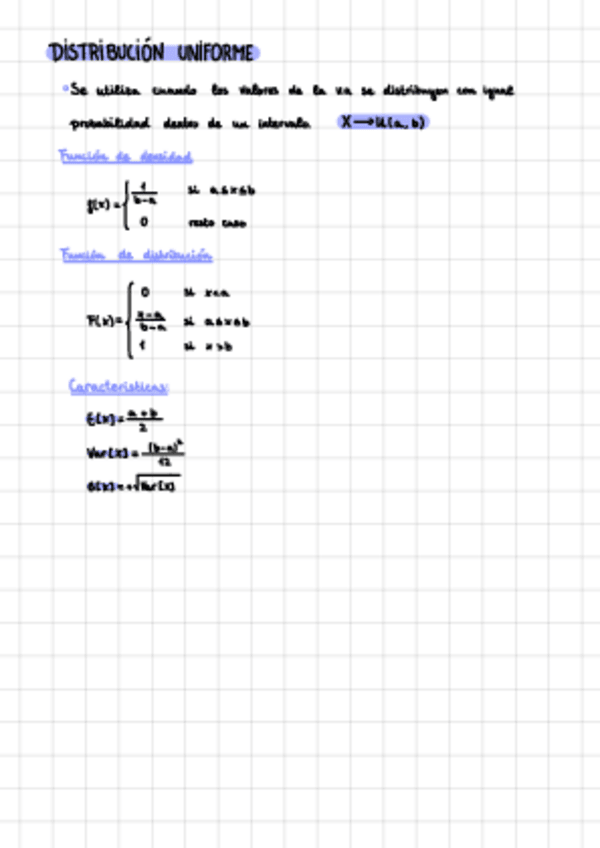 DISTRIBUCIÓN UNIFORME
• Se utiliza cuando los valores de la va se distribuyen con igual
probabilidad dentro de un intervalo X→U(a,b)
Función de densidad
f(x) = { 1/(b-a) si a≤x≤b
0 resto caso
Función de distribución
0 si x<a
F(x) = { (x-a)/(b-a) si a≤x≤b
1 si x>b
Características:
E[x] = (a+b)/2
Var[x] = (b-a)²/12
σ[x] = +√Var[x]